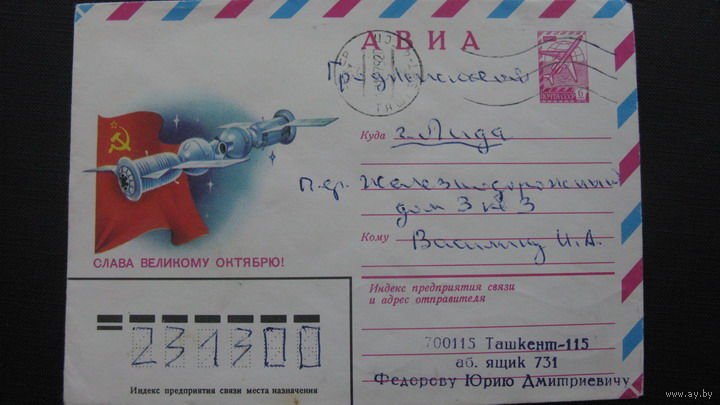 АВИА
Гродненская
Куда г. Лида
пер. Железнодорожный
дом 3 кв 3
Кому Василюку И.А.
СЛАВА ВЕЛИКОМУ ОКТЯБРЮ!
Индекс предприятия связи
и адрес отправителя
700115 Ташкент-115
аб. ящик 731
Федорову Юрию Дмитриевичу
231300
Индекс предприятия связи места назначения
6
www.ay.by